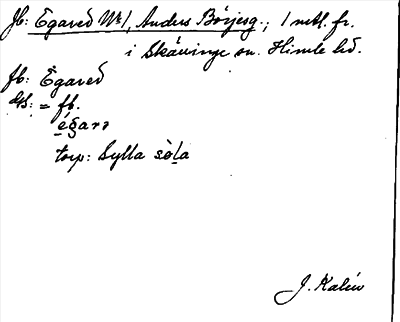 fb: Egared Nr 1, Anders Börjesg.; 1 mtl. fr.
i Skällinge sn. Himle hd.
fb: Egared
ds: = fb.
égarə
torp: Sylla sòla
J. Kalén